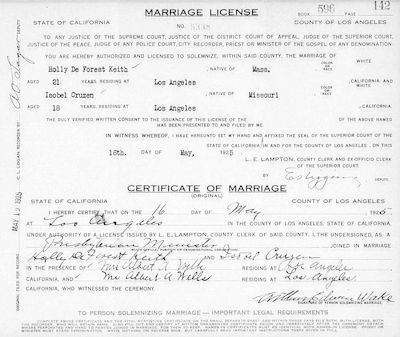 MARRIAGE LICENSE
BOOK 596 PAGE 142
STATE OF CALIFORNIA
COUNTY OF LOS ANGELES
No. 5338
TO ANY JUSTICE OF THE SUPREME COURT, JUSTICE OF THE DISTRICT COURT OF APPEAL, JUDGE OF THE SUPERIOR COURT,
JUSTICE OF THE PEACE, JUDGE OF ANY POLICE COURT, CITY RECORDER, PRIEST OR MINISTER OF THE GOSPEL OF ANY DENOMINATION:
YOU ARE HEREBY AUTHORIZED AND LICENSED TO SOLEMNIZE, WITHIN SAID COUNTY, THE MARRIAGE OF
WHITE
Holly De Forest Keith , NATIVE OF Mass. COLOR OR RACE
AGED 21 YEARS, RESIDING AT Los Angeles CALIFORNIA, AND
WHITE
Isobel Cruzen , NATIVE OF Missouri COLOR OR RACE
AGED 18 YEARS, RESIDING AT Los Angeles , CALIFORNIA.
THE DULY VERIFIED WRITTEN CONSENT TO THE ISSUANCE OF THIS LICENSE OF THE OF THE ABOVE NAMED
HAS BEEN PRESENTED TO AND FILED BY ME.
IN WITNESS WHEREOF, I HAVE HEREUNTO SET MY HAND AND AFFIXED THE SEAL OF THE SUPERIOR COURT OF THE
STATE OF CALIFORNIA IN AND FOR THE COUNTY OF LOS ANGELES, ON THIS
16th. DAY OF May, 1925
L. E. LAMPTON, COUNTY CLERK AND EX-OFFICIO CLERK
OF THE SUPERIOR COURT.
BY
DEPUTY.
CERTIFICATE OF MARRIAGE
(ORIGINAL)
STATE OF CALIFORNIA
COUNTY OF LOS ANGELES
I HEREBY CERTIFY THAT ON THE 16 DAY OF May 1925
AT Los Angeles IN THE COUNTY OF LOS ANGELES, STATE OF CALIFORNIA,
UNDER AUTHORITY OF A LICENSE ISSUED BY L. E. LAMPTON, COUNTY CLERK OF SAID COUNTY, I, THE UNDERSIGNED, AS A
Presbyterian Minister JOINED IN MARRIAGE
Holly De Forest Keith AND Isobel Cruzen
IN THE PRESENCE OF Mr Albert A Wills RESIDING AT Los Angeles
CALIFORNIA, AND Mrs Albert A Wills RESIDING AT Los Angeles
CALIFORNIA, WHO WITNESSED THE CEREMONY.
Arthur Edwin Wake
SIGNATURE OF PERSON SOLEMNIZING MARRIAGE
TO PERSON SOLEMNIZING MARRIAGE — IMPORTANT LEGAL REQUIREMENTS
C. L. LOGAN, RECORDER BY
DEPUTY
MAY 19 1925
ORIGINAL FILED FOR RECORD